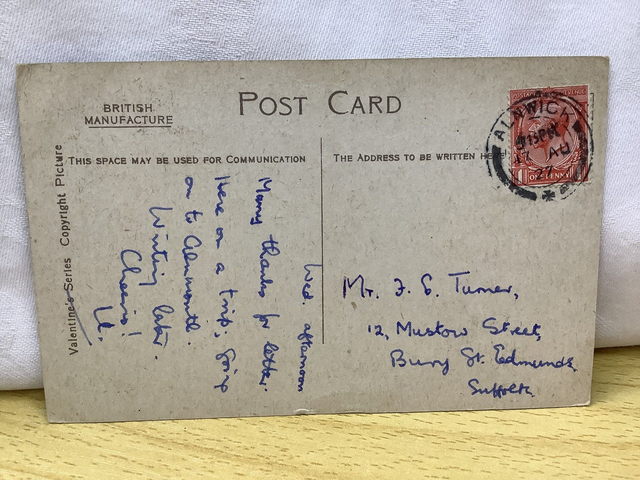 POST CARD
BRITISH
MANUFACTURE
THIS SPACE MAY BE USED FOR COMMUNICATION
THE ADDRESS TO BE WRITTEN HERE
Valentine's Series Copyright Picture
ALNWICK
17 AU
27
ONE PENNY
Wed. afternoon
Many thanks for letter.
Here on a trip, going
on to Alnmouth.
Writing later.
Cheerio!
Mr. F. S. Turner,
12, Mustow Street,
Bury St. Edmunds,
Suffolk.